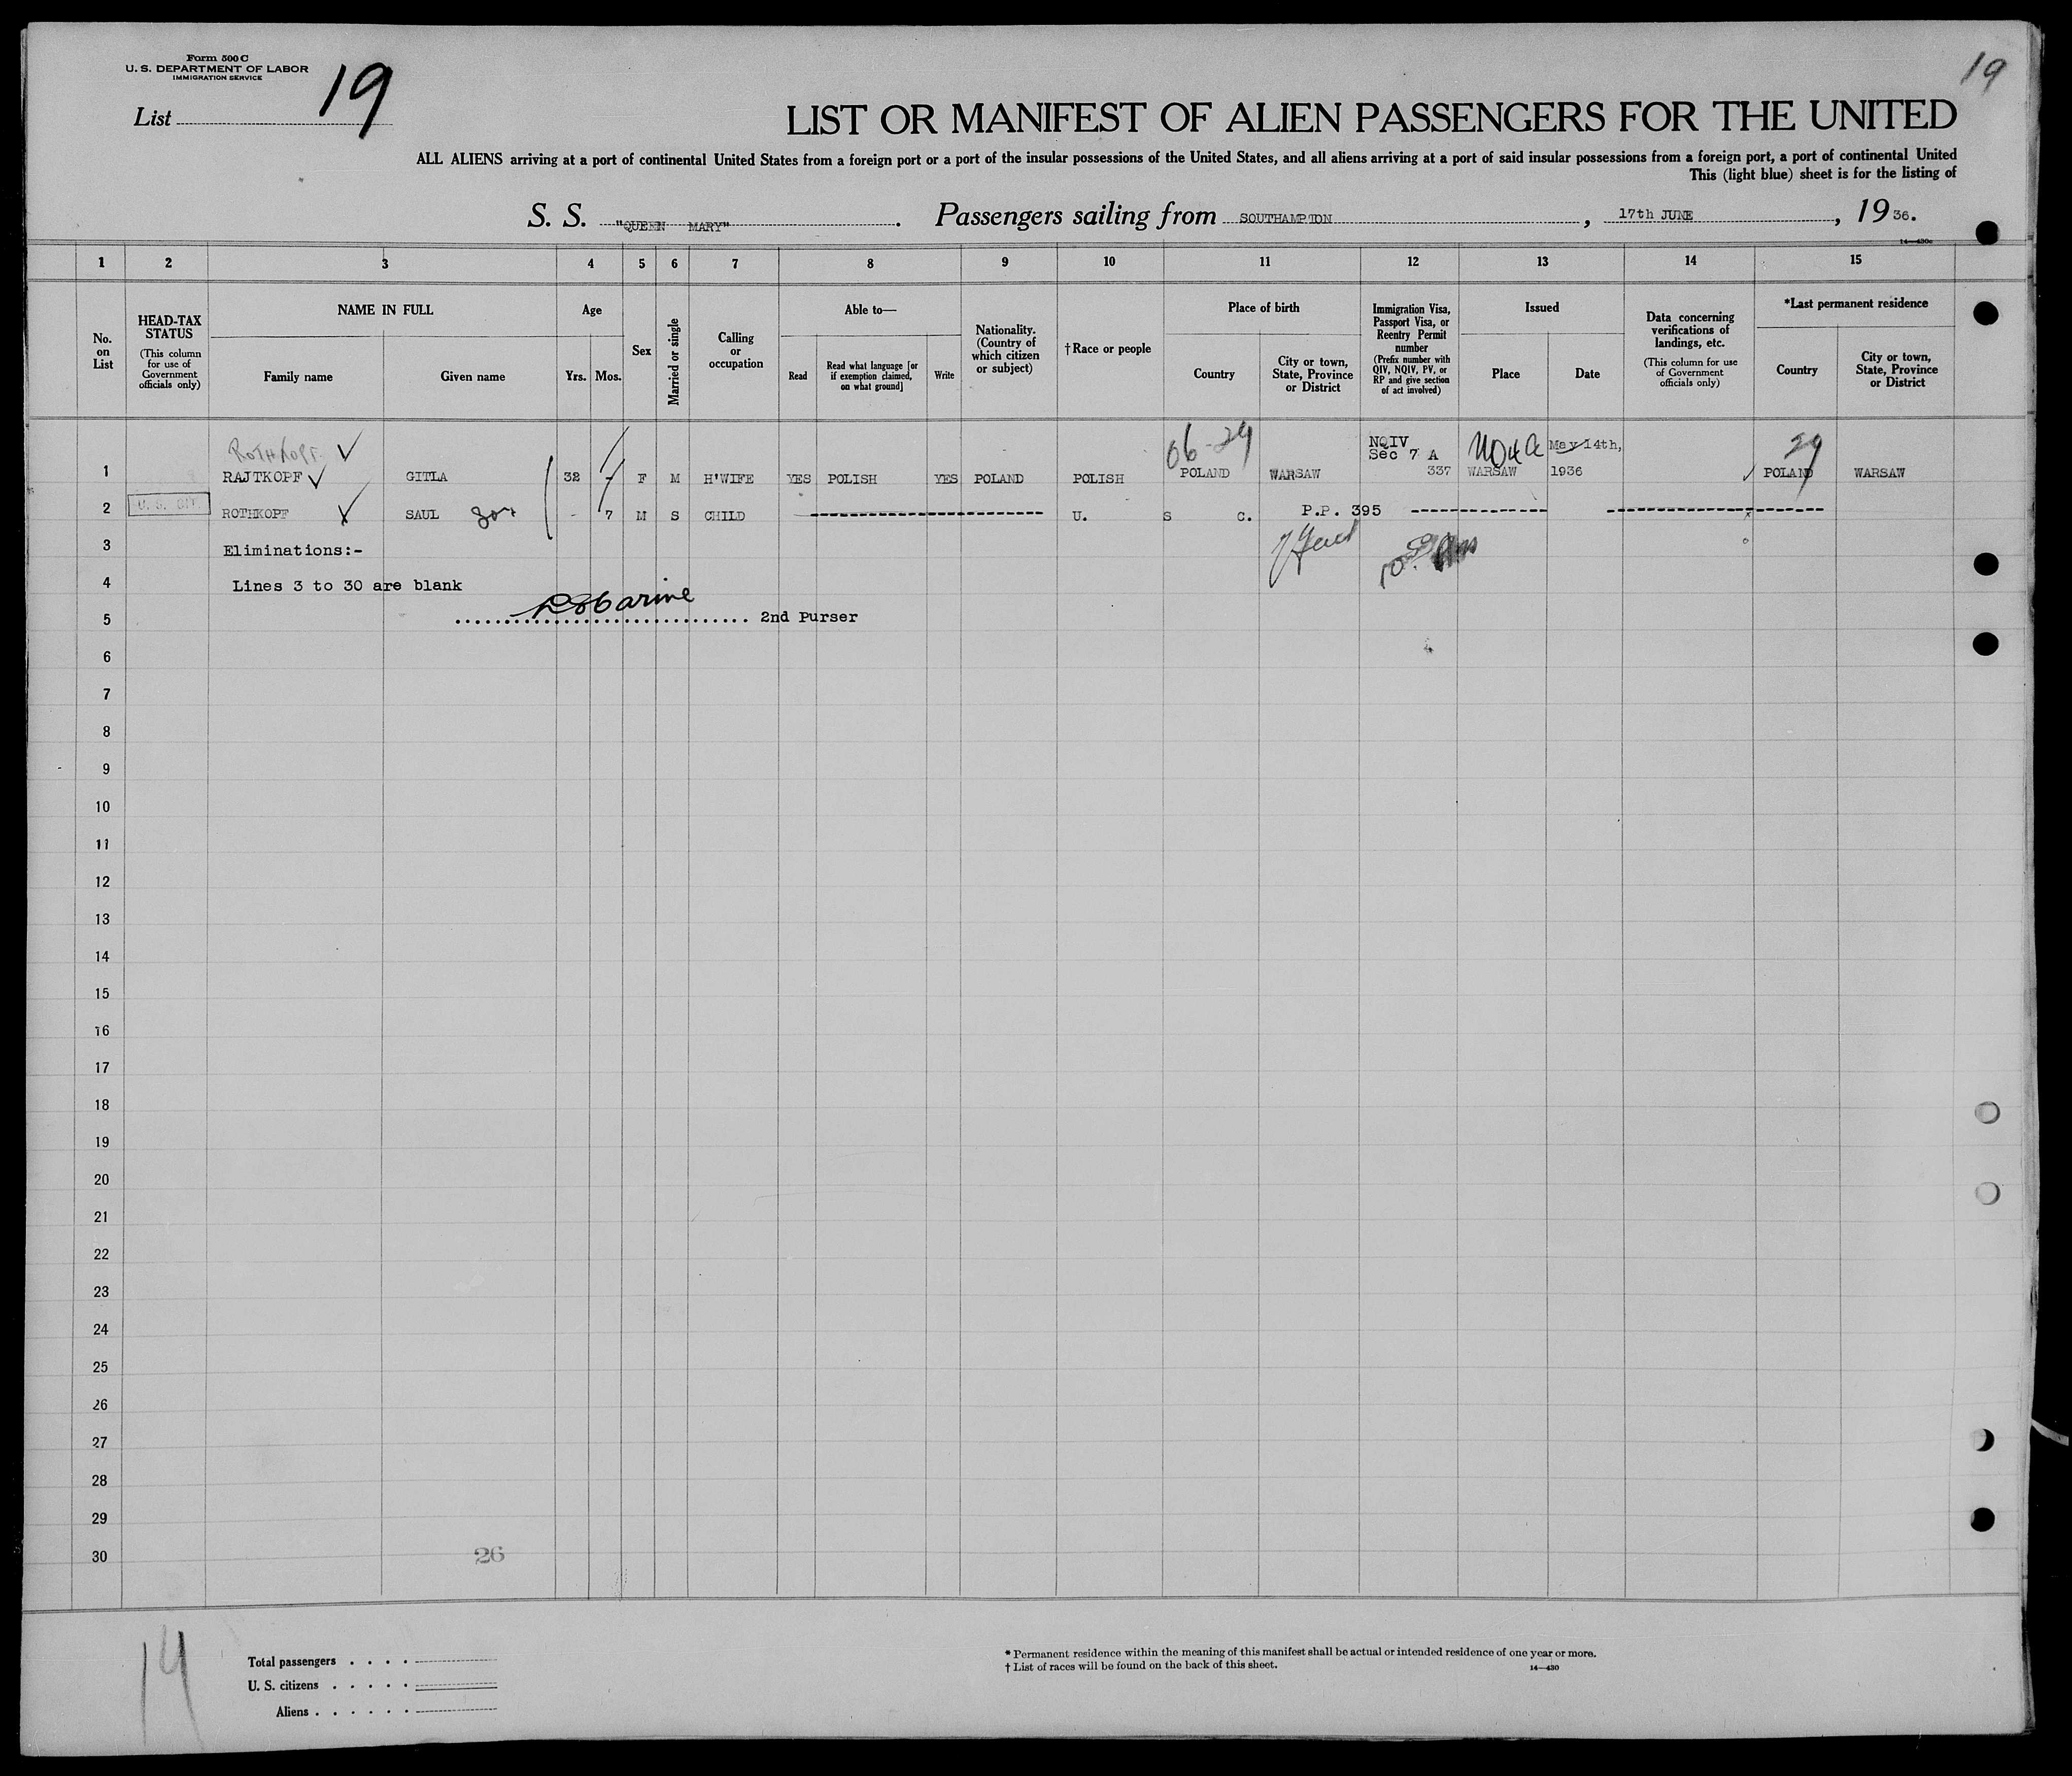 Form 500 C
U. S. DEPARTMENT OF LABOR
IMMIGRATION SERVICE
19
List 19
LIST OR MANIFEST OF ALIEN PASSENGERS FOR THE UNITED
ALL ALIENS arriving at a port of continental United States from a foreign port or a port of the insular possessions of the United States, and all aliens arriving at a port of said insular possessions from a foreign port, a port of continental United
This (light blue) sheet is for the listing of
S. S. "QUEEN MARY". Passengers sailing from SOUTHAMPTON, 17th JUNE, 1936.
14—430c
1 2 3 4 5 6 7 8 9 10 11 12 13 14 15
No. on List
HEAD-TAX STATUS
(This column for use of Government officials only)
NAME IN FULL
Family name
Given name
Age
Yrs.
Mos.
Sex
Married or single
Calling or occupation
Able to—
Read
Read what language [or if exemption claimed, on what ground]
Write
Nationality. (Country of which citizen or subject)
†Race or people
Place of birth
Country
City or town, State, Province or District
Immigration Visa, Passport Visa, or Reentry Permit number
(Prefix number with QIV, NQIV, PV, or RP and give section of act involved)
Issued
Place
Date
Data concerning verifications of landings, etc.
(This column for use of Government officials only)
*Last permanent residence
Country
City or town, State, Province or District
Rothkopf 06-29 NQIV May 14th, 29
Sec 7 A
1 RAJTKOPF GITLA 32 F M H'WIFE YES POLISH YES POLAND POLISH POLAND WARSAW 337 WARSAW 1936 POLAND WARSAW
2 U. S. CIT. ROTHKOPF SAUL son - 7 M S CHILD U. S C. P.P. 395
3 Eliminations:-
4 Lines 3 to 30 are blank
5 2nd Purser
6
7
8
9
10
11
12
13
14
15
16
17
18
19
20
21
22
23
24
25
26
27
28
29
30 26
19
Total passengers
U. S. citizens
Aliens
* Permanent residence within the meaning of this manifest shall be actual or intended residence of one year or more.
† List of races will be found on the back of this sheet.
14—430